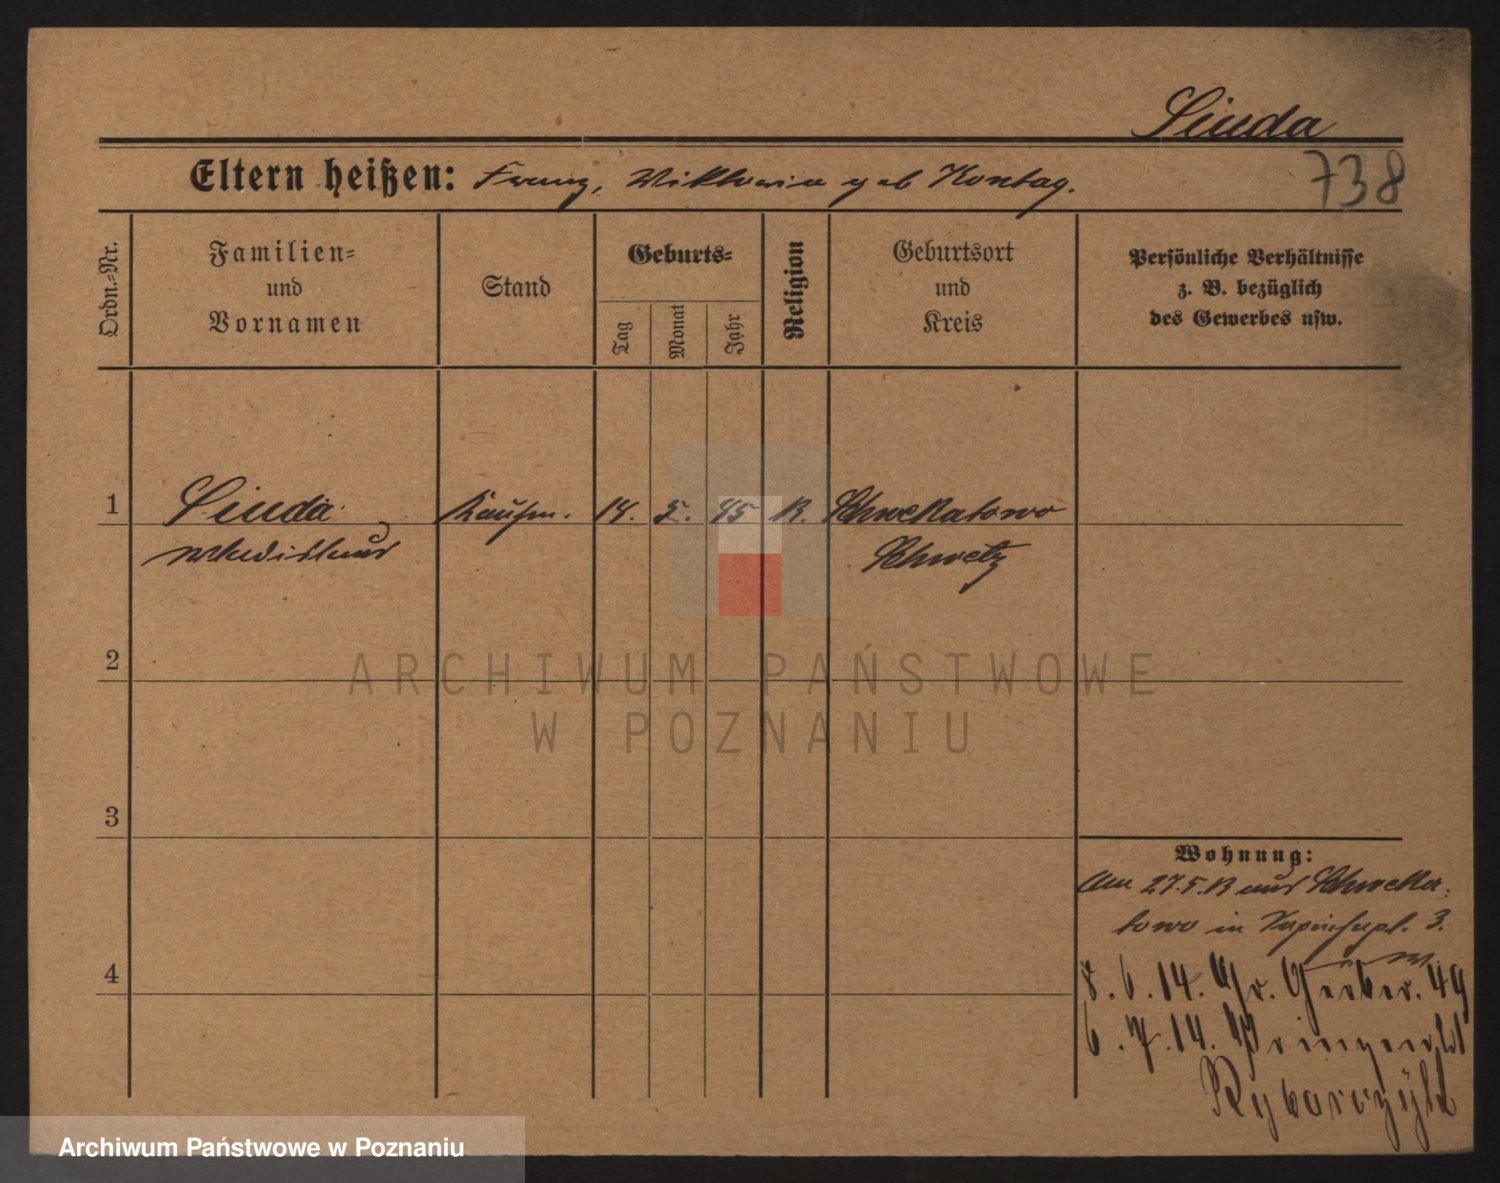 Siuda
Eltern heißen: Franz, Wiktoria geb Kontag.
738
Ordn.-Nr.
Familien=
und
Vornamen
Stand
Geburts=
Tag
Monat
Jahr
Religion
Geburtsort
und
Kreis
Persönliche Verhältnisse
z. B. bezüglich
des Gewerbes usw.
1 Siuda Kaufm. 14. 5. 95 R. Schwekatowo
Wladislaus Schwetz
2
ARCHIWUM PAŃSTWOWE
W POZNANIU
3
Wohnung:
Am 27.5.13 aus Schweka-
towo in 3.
4
8.6.14. Gr. Gerber. 49
6.7.14.
Archiwum Państwowe w Poznaniu